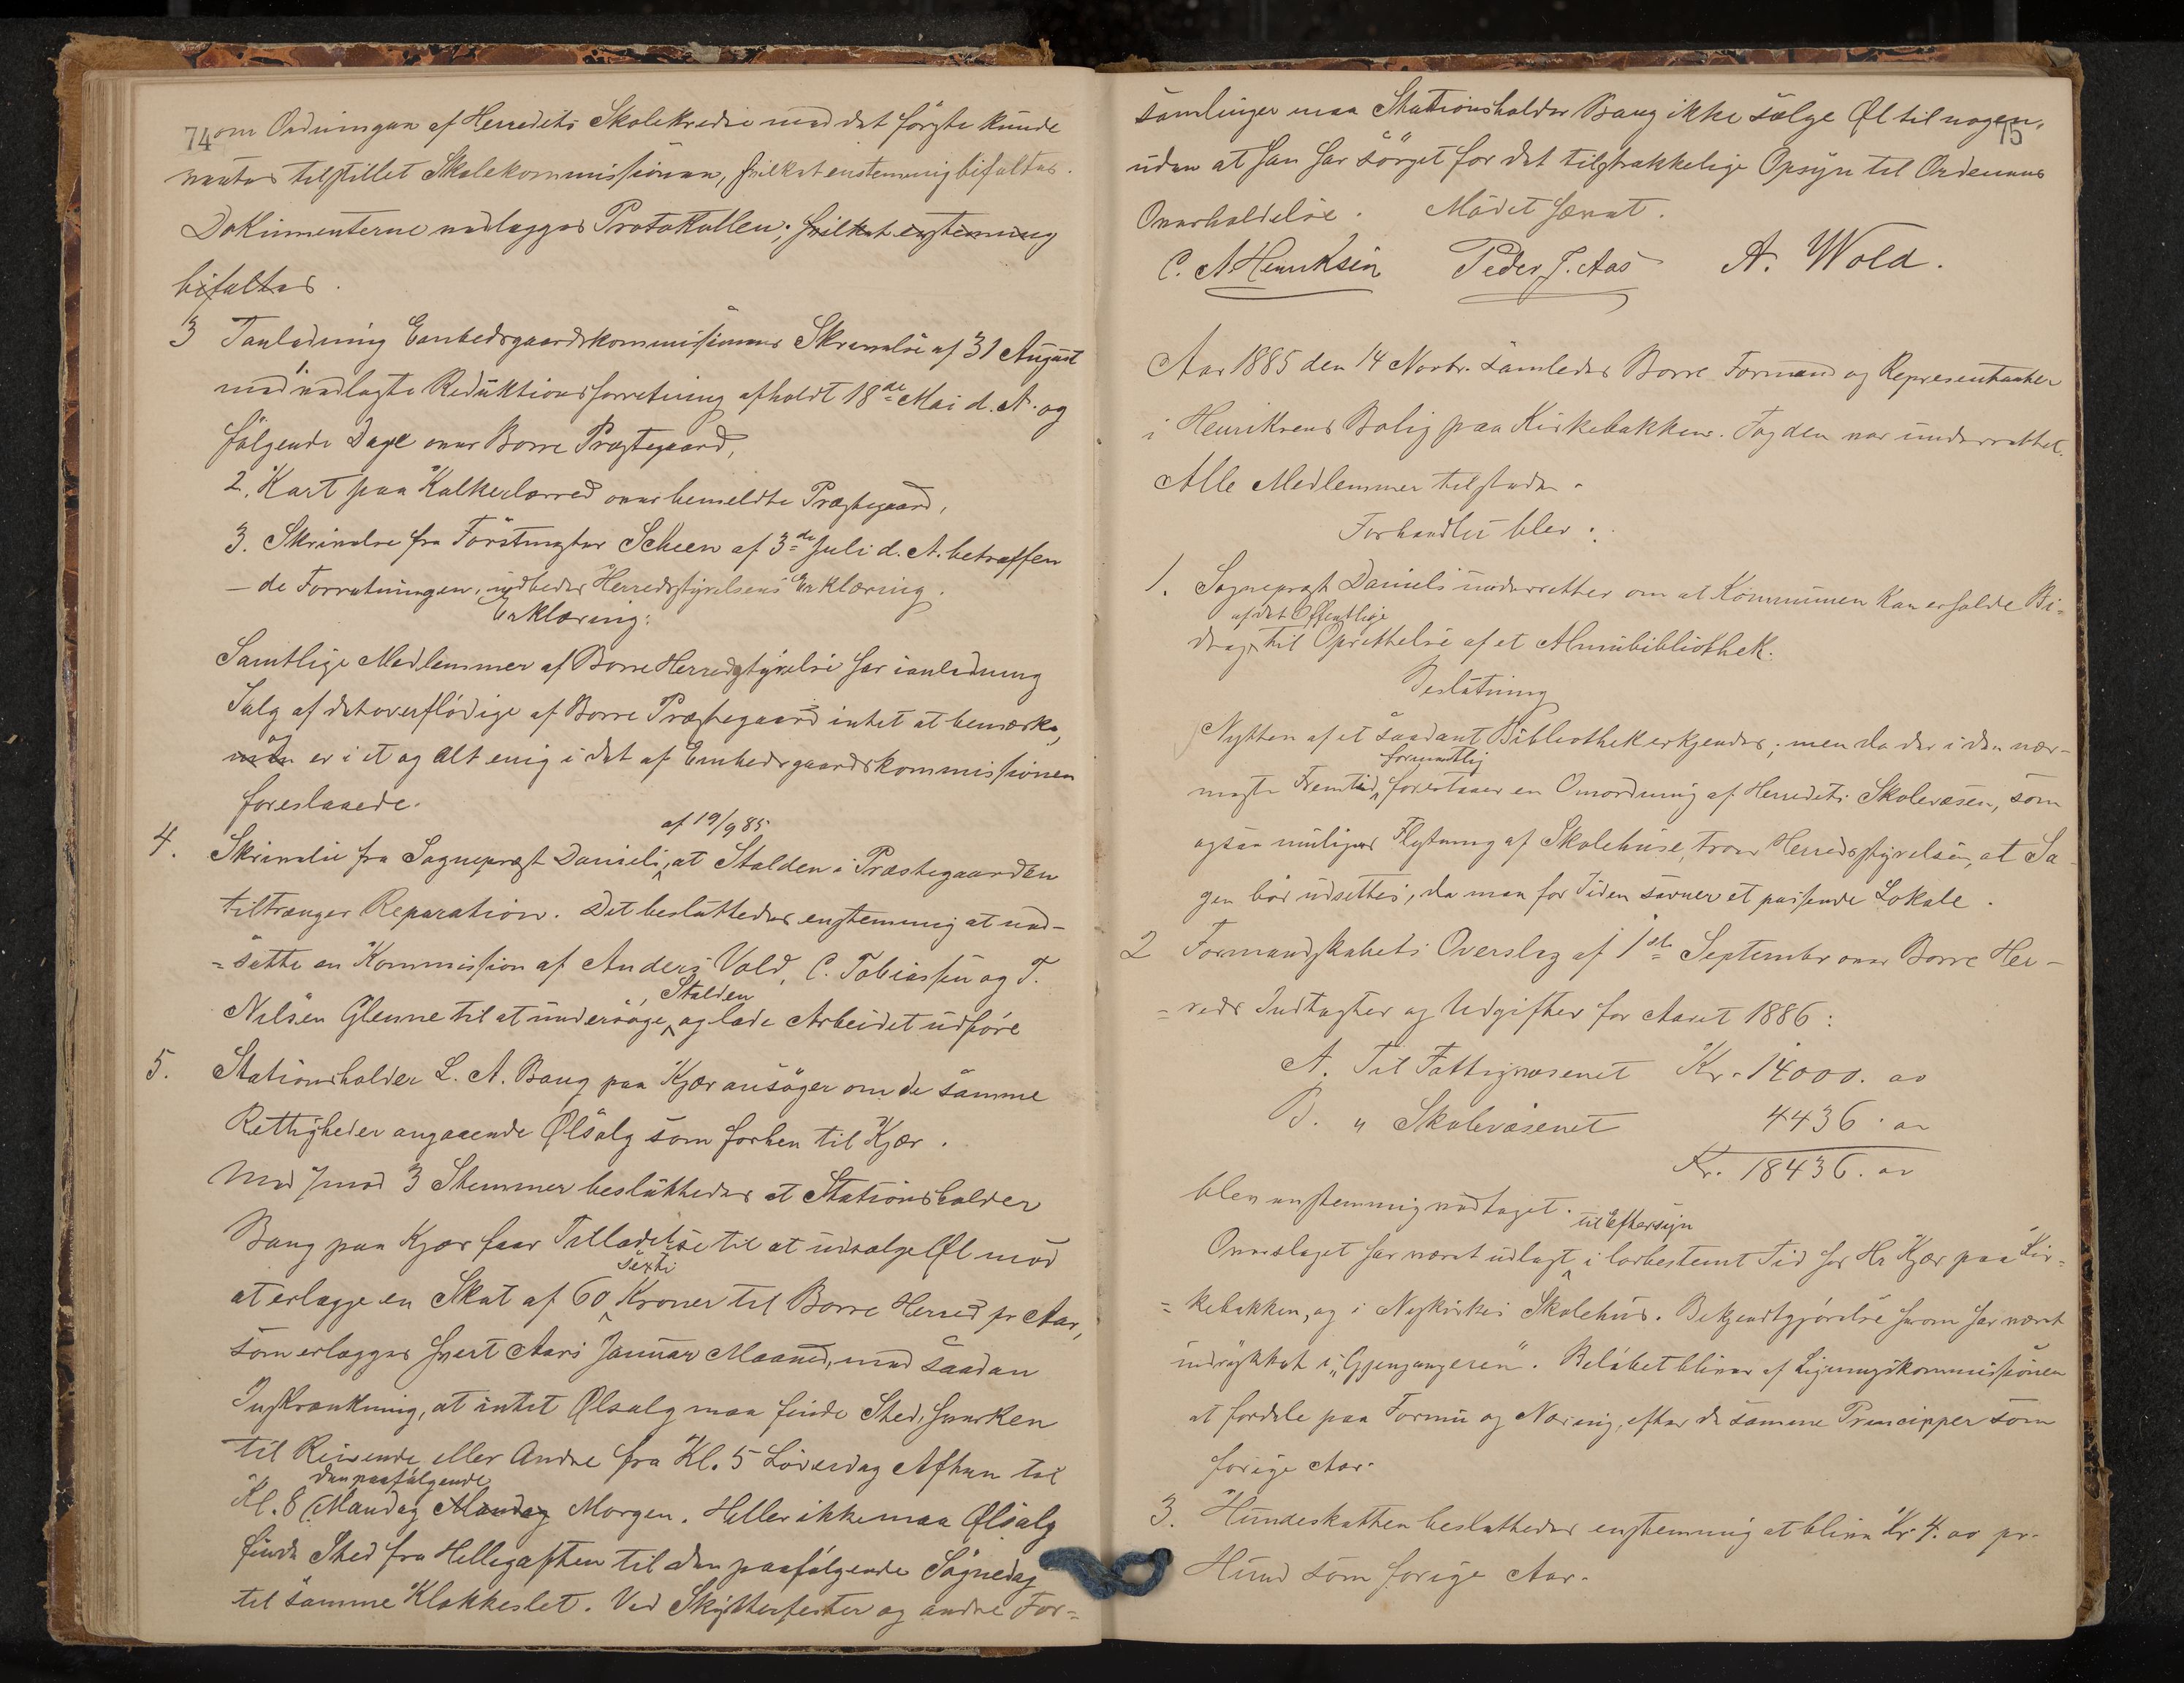 74
om Ordningen af Herredets Skolekredse med det første kunde
ventes tilstillet Skolekommissionen, hvilket enstemmig bifaltes.
Dokumenterne vedlægges Protokollen; hvilket enstemmig
bifaltes.
3 I anledning Embedsgaardskommissionens Skrivelse af 31 August
med 1. vedlagte Reduktionsforretning afholdt 18de Mai d. A. og
følgende Dage over Borre Præstegaard,
2. Kart paa Kalkerlærred over bemeldte Præstegaard,
3. Skrivelse fra Forstmester Scheen af 3de Juli d. A. betræffen
- de Forretningen, indbedes Herredsstyrelsens Erklæring.
Erklæring:
Samtlige Medlemmer af Borre Herredsstyrelse har ianledning
Salg af det overflødige af Borre Præstegaard intet at bemærke,
og
men er i et og alt enig i det af Embedsgaardskommissionen
foreslaaede.
af 19/9 85
4. Skrivelse fra Sogneprest Daniels, at Stalden i Præstegaarden
tiltrænger Reparation. Det besluttedes enstemmig at ned-
= sette en Kommission af Anders Vold, C. Tobiassen og T.
Stalden
Nilsen Glenne til at undersøge, og lade Arbeidet udføre
5. Stationsholder L. A. Bang paa Kjær ansøger om de samme
Rettigheder angaaende Ølsalg som forhen til Kjær.
Med 7 mod 3 Stemmer besluttedes at Stationsholder
Bang paa Kjær faar Tilladelse til at udsælge Øl mod
sexti
at erlægge en Skat af 60 Kroner til Borre Herred pr Aar,
som erlægges hvert Aars Januar Maaned, med saadan
Inskrænkning, at intet Ølsalg maa finde Sted, hverken
til Reisende eller Andre fra Kl. 5 Løverdag Aften til
den paafølgende
Kl. 8 Mandag Mandag Morgen. Heller ikke maa Ølsalg
finde Sted fra Helligaften til den paafølgende Søgnedag
til samme Klokkeslet. Ved Skytterfester og andre For=
75
samlinger maa Stationsholder Bang ikke sælge Øl til nogen,
uden at han har sørget for det tilstrækkelige Opsyn til Ordenens
Overholdelse. Mødet hævet.
C. A Henriksen Peder J. Aas A. Wold.
Aar 1885 den 14 Novbr. samledes Borre Formænd og Representanter
i Henriksens Bolig paa Kirkebakken. Fogden var underrettet.
Alle Medlemmer tilstede.
Forhandlet blev:
1. Sogneprest Daniels underretter om at Kommunen kan erholde Bi=
af det Offentlige
drag til Oprettelse af et Almubibliothek.
Beslutning
Nytten af et saadant Bibliothek erkjendes; men da der i den nær-
formentlig
meste Fremtid, forestaaer en Omordning af Herredets Skolevæsen, som
ogsaa muligens Flytning af Skolehuse, troer Herredsstyrelsen, at Sa
gen bør udsettes, da man for Tiden savner et passende Lokale.
2 Formandskabets Overslag af 1ste September over Borre Her-
= reds Indtægter og Udgifter for Aaret 1886:
A. Til Fattigvæsenet Kr. 14000. oo
B. " Skolevæsenet 4436. oo
Kr. 18436. oo
blev enstemmig vedtaget.
til Eftersyn
Overslaget har været udlagt, i lovbestemt Tid hos Hr Kjær paa Kir=
= kebakken, og i Nykirkes Skolehus. Bekjendtgjørelse herom har været
indrykket i "Gjengangeren". Beløbet bliver af Ligningskommissionen
at fordele paa Formue og Næring, efter de samme Principper som
forige Aar.
3. Hundeskatten besluttedes enstemmig at blive Kr. 4. oo pr.
Hund som forige Aar.